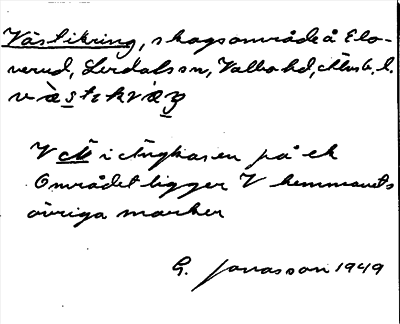 Västikring, skogsområde å Elo-
verud, Lerdalssn, Valbo hd, Älvsb. l.
i på ek
Området ligger V hemmanets
övriga marker
G. Jonasson 1949